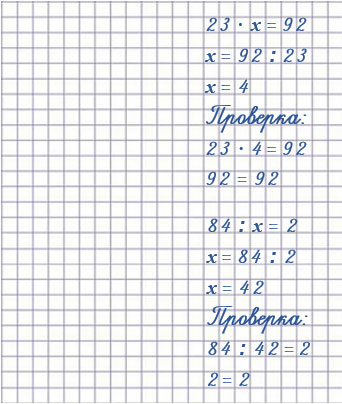 23 · x = 92
x = 92 : 23
x = 4
Проверка:
23 · 4 = 92
92 = 92
84 : x = 2
x = 84 : 2
x = 42
Проверка:
84 : 42 = 2
2 = 2